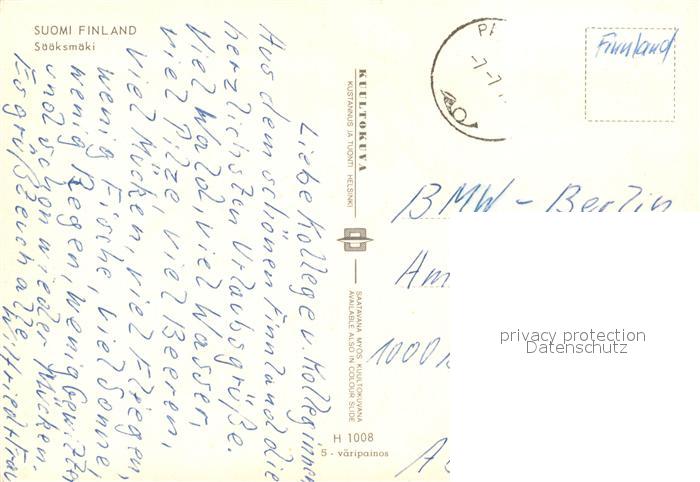 SUOMI FINLAND
Sääksmäki
Liebe Kollege u. Kolleginnen
Aus dem schönen Finnland die
herzlichsten Urlaubsgrüße.
Viel Wald, viel Wasser,
viel Pilze, viel Beeren,
viel Mücken, viel Fliegen,
wenig Fische, viel Sonne,
wenig Regen, wenig Gewitter
und schon wieder Mücken.
Es grüßt euch alle
Wilfried + Frau
KUULTOKUVA
KUSTANNUS JA TUONTI HELSINKI
SAATAVANA MYÖS KUULTOKUVANA
AVAILABLE ALSO IN COLOUR SLIDE
H 1008
5 - väripainos
Finnland
BMW - Berlin
Am
1000
privacy protection
Datenschutz